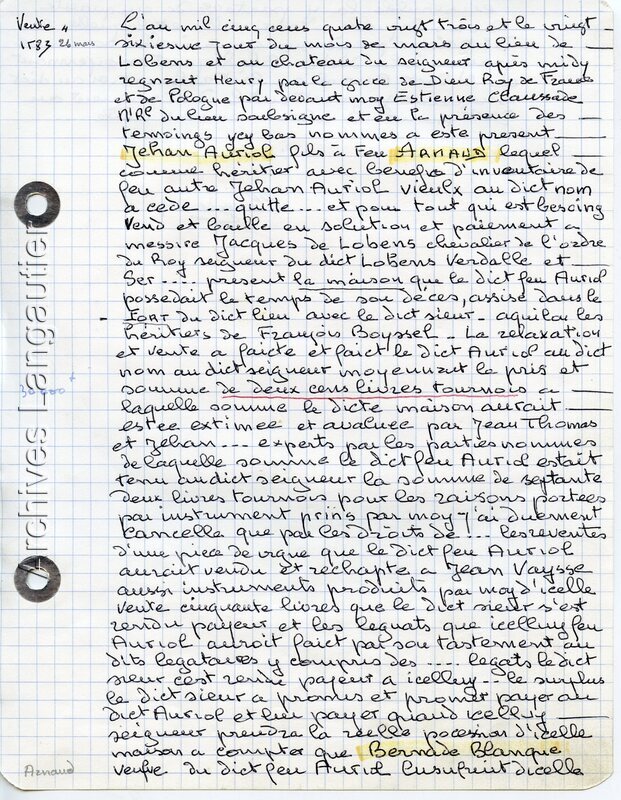 Vente "
1583 26 mars
L'an mil cinq cens quatre vingt trois et le vingt
sixiesme jour du mois de mars au lieu de
Lobens et au chateau du seigneur après midy
regnant Henry par la grace de Dieu Roy de France
et de Pologne par devant moy Estienne Claussade
Nre du lieu soubsigne et en la présence des
temoings ycy bas nommes a este present
Jehan Auriol fils à Feu ARNAUD lequel
comme héritier avec benefice d'inventaire de
feu autre Jehan Auriol vieulx au dict nom
a cede .... quitte ... et pour tout qui est besoing
vend et baille en solution et paiement a
messire Jacques de Lobens chevalier de l'ordre
du Roy seigneur du dict Lobens Verdalle et
Ser .... present la maison que le dict feu Auriol
possedait le temps de son déces, assise dans le
- FORT du dict lieu avec le dict sieur - aquilon les
héritiers de François Boyssel - La relaxation
et vente a faicte et faict le dict Auriol au dict
nom au dict seigneur moyennant le pris et
30 000
somme de deux cens livres tournois a
laquelle somme le dicte maison aurait
estée extimee et avaluee par Jean Thomas
et Jehan .... experts par les parties nommes
de laquelle somme le dict feu Auriol estait
tenu au dict seigneur la somme de septante
deux livres tournois pour les raisons portees
par instrument prins par moy - j'ai duement
cancelle que par les droits de .... les reventes
d'une piece de vigne que le dict feu Auriol
auroit vendu et rechapte a Jean Vaysse
aussi instruments produits par moy d'icelle
vente cinquante livres que le dict sieur s'est
rendu payeur et les leguats que icelluy feu
Auriol auroit faict par son tastement au
dits legataires y compris des .... legats le dict
sieur c'est rendu payeur a icelluy - le surplus
le dict sieur a promis et promet payer au
dict Auriol et luy payer quand icelluy
seigneur prendra la réelle pocession d'icelle
maison a compter que Bernade Blanque
veufve du dict feu Auriol l'usufruit dicelle
Arnaud
Archives Langautier